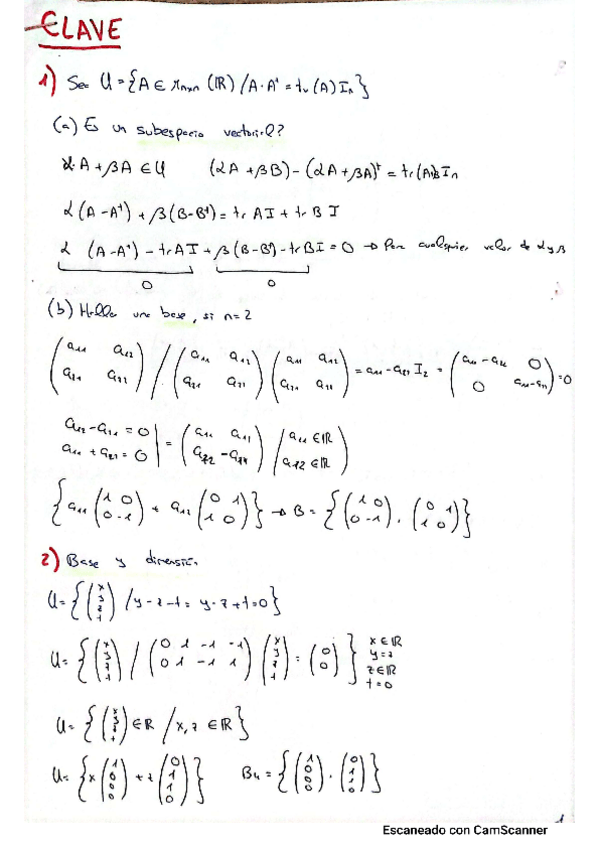 CLAVE
1) Sea U = {A ∈ M_{nxn} (ℝ) / A - A^t = tr (A) I_n}
(a) Es un subespacio vectorial?
α·A + βA ∈ U (αA + βB) - (αA + βA)^t = tr(A+B) I_n
α (A - A^t) + β (B - B^t) = tr A I + tr B I
α (A - A^t) - tr A I + β (B - B^t) - tr B I = 0 → Para cualquier valor de α y β
0 0
(b) Halla una base, si n=2
(a_{11} a_{12} / a_{21} a_{22}) / (a_{11} a_{12} / a_{21} a_{22}) (a_{11} a_{12} / a_{21} a_{22}) = a_{11} - a_{22} I_2 = (a_{11} - a_{22} 0 / 0 a_{11} - a_{22}) = 0
a_{12} - a_{21} = 0
a_{11} + a_{22} = 0 | = (a_{11} a_{12} / a_{12} - a_{11}) / a_{11} ∈ ℝ a_{12} ∈ ℝ
{a_{11} (1 0 / 0 -1) + a_{12} (0 1 / 1 0)} → B = {(1 0 / 0 -1), (0 1 / 1 0)}
2) Base y dimensión.
U = {(x y z t) / y - z - t = y - z + t = 0}
U = {(x y z t) / (0 1 -1 -1 / 0 1 -1 1) (x y z t) = (0 0)} x ∈ ℝ y = z z ∈ ℝ t = 0
U = {(x y z t) ∈ ℝ / x, z ∈ ℝ}
U = {x (1 0 0 0) + z (0 1 1 0)} B_u = {(1 0 0 0), (0 1 1 0)}
1
Escaneado con CamScanner